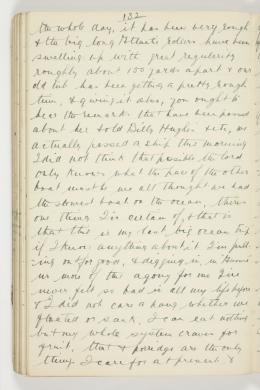 132
the whole day, it has been very rough
& the big long Atlantic rollers have been
swelling up with great regularity
roughly about 100 yards apart & our
old tub has been getting a pretty rough
time, & giving it also, you ought to
hear the remarks that have been passed
about her & old Billy Hughes. & etc, we
actually passed a ship this morning
I did not think that possible the Lord
only knows what the pace of the other
boat must be we all thought we had
the slowest boat on the ocean, there's
one thing I'm certain of, & that is
that this is my last big ocean trip
if I know anything about it I'm pull-
ing out for good, & digging in, in Aussie
no more of this agony for me I've
never felt so bad in all my life before
& I did not care a hang whether we
floated or sank, I can eat nothing
but my whole system craves for
fruit, that & porridge are the only
things I care for at present &